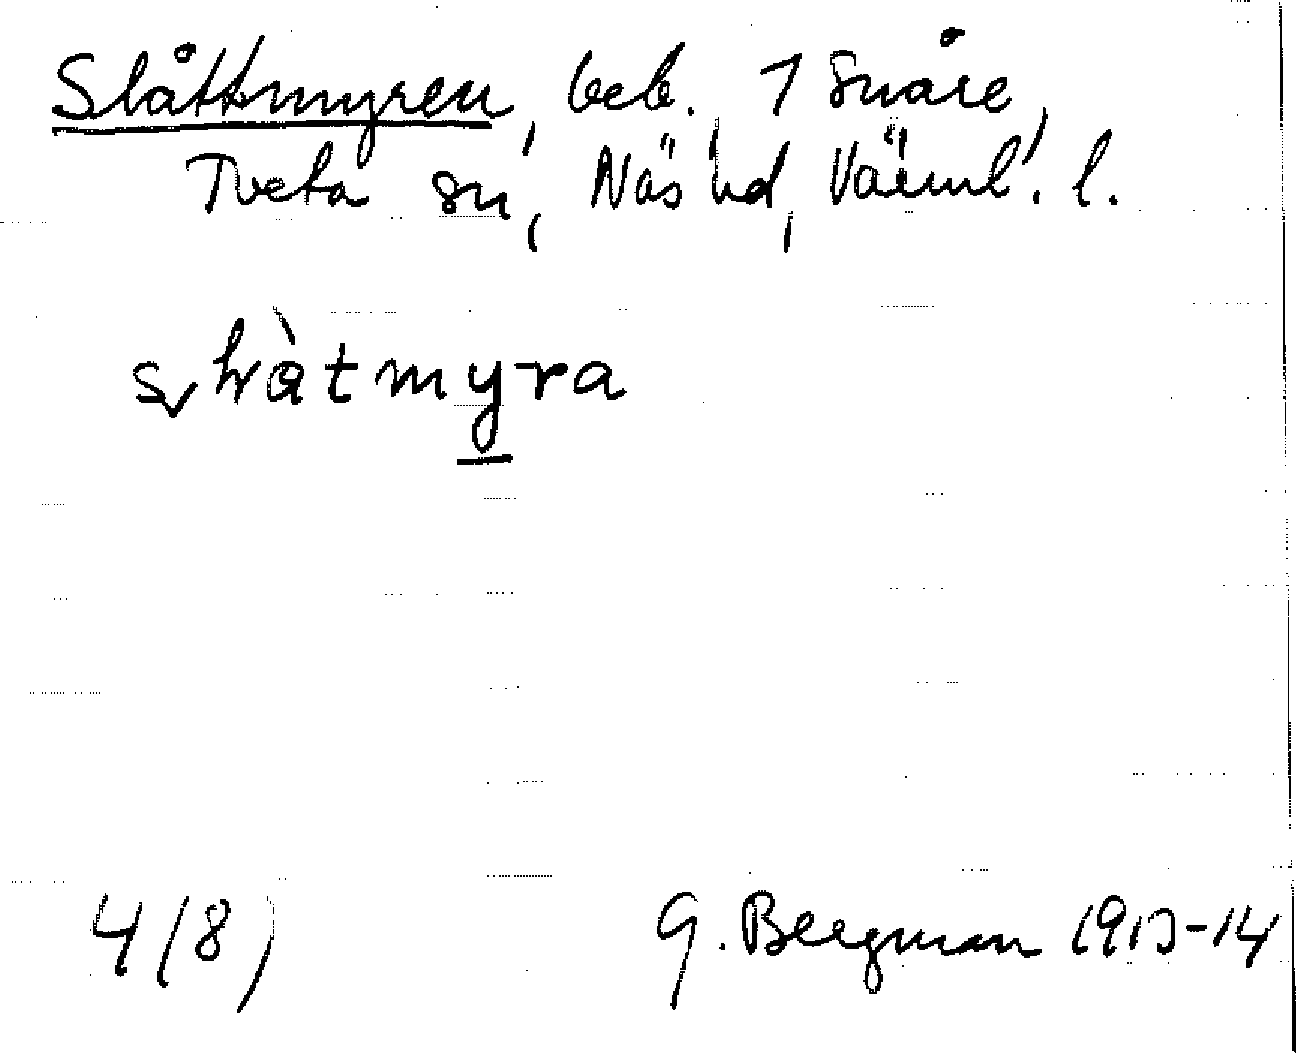 Slåttmyren, beb. 1 Snåre,
Tveta sn, Näs hd, Värml. l.
4(8)
G. Bergman 1913-14